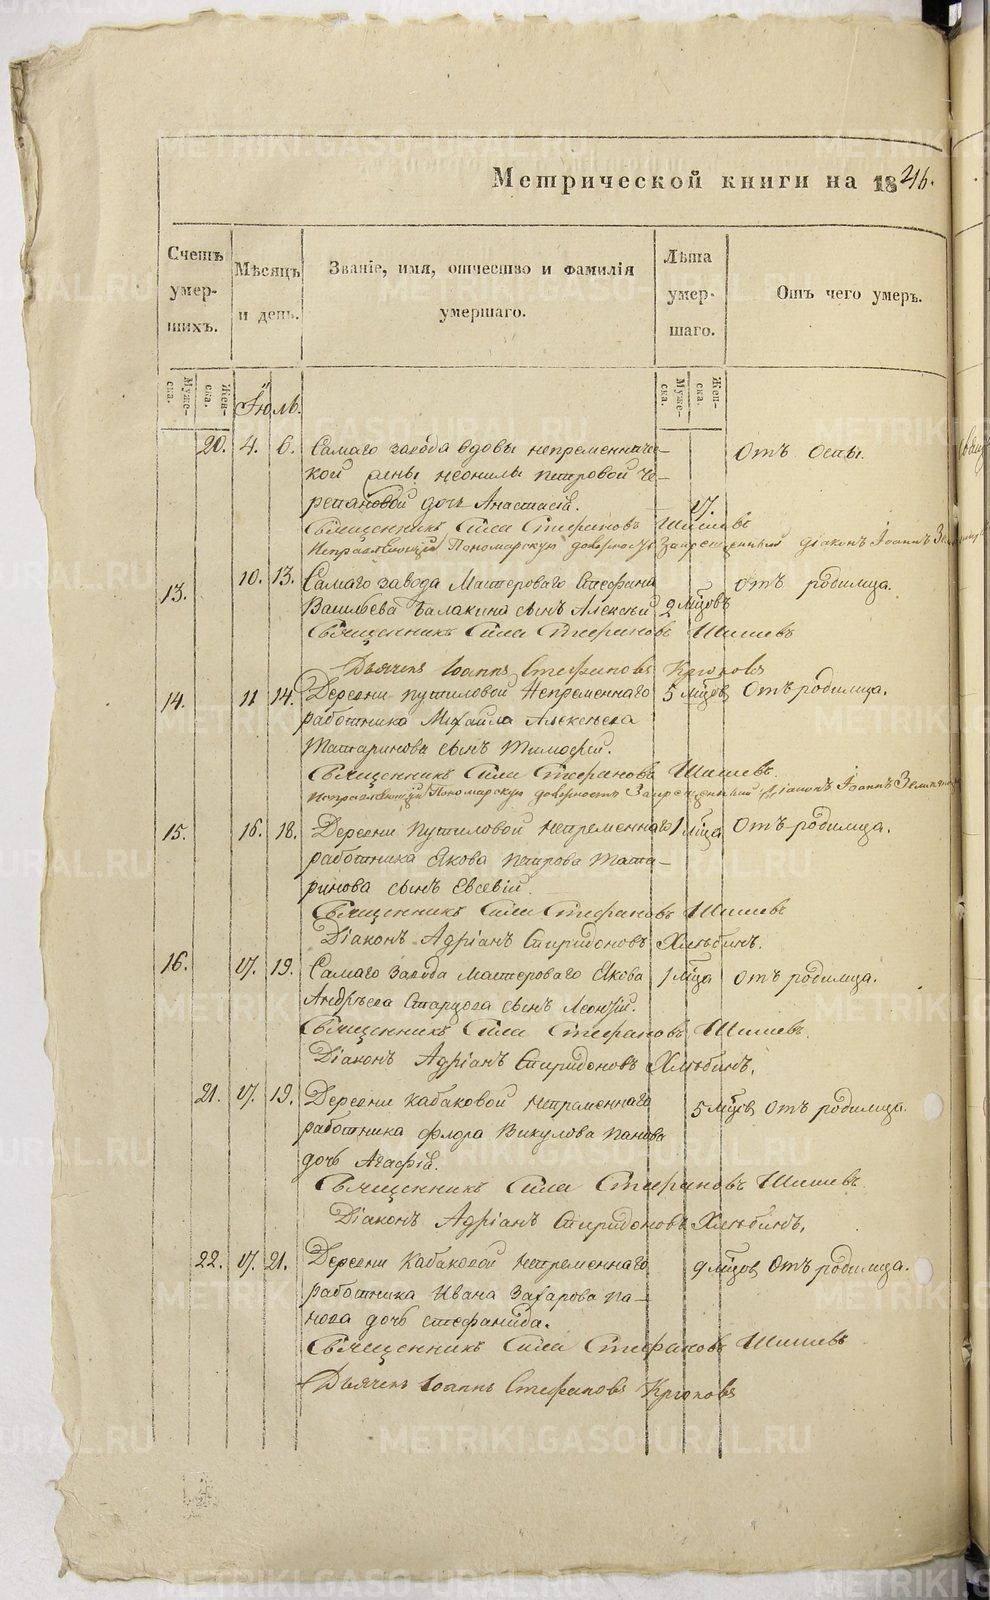 Метрической книги на 1846.
Счетъ умер-шихъ.
Мѣсяцъ и день.
Званіе, имя, отчество и фамилія умершаго.
Лѣта умер-шаго.
Отъ чего умеръ.
Муже-ска.
Жен-ска.
Муже-ска.
Жен-ска.
Іюль.
20. 4. 6. Самаго завода вдовы непременниче- Отъ Оспы.
ской жены Неонилы Петровой Че-
репановой дочь Анастасія.
Священникъ Сила Стефановъ Шишевъ
Исправляющій Пономарскую должность Запрещенный Діаконъ Іоаннъ
13. 10. 13. Самаго завода Мастероваго Стефана Отъ родимца.
Васильева Балакина сынъ Алексѣй 2 мцовъ
Священникъ Сила Стефановъ Шишевъ
Дьячекъ Іоаннъ Стефановъ Крюковъ
14. 11 14. Деревни Путиловой Непременнаго 5 мцовъ Отъ родимца.
работника Михаила Алексѣева
Татаринова сынъ Тимофей.
Священникъ Сила Стефановъ Шишевъ.
Исправляющій Пономарскую должность Запрещенный Діаконъ Іоаннъ
15. 16. 18. Деревни Путиловой Непременнаго 1 мца Отъ родимца.
работника Якова Петрова Тата-
ринова сынъ Евсевій.
Священникъ Сила Стефановъ Шишевъ
Діаконъ Адріанъ Спиридоновъ Хлѣбинъ.
16. 17. 19. Самаго завода Мастероваго Якова 1 мца Отъ родимца.
Андрѣева Старцова сынъ Леонтій.
Священникъ Сила Стефановъ Шишевъ
Діаконъ Адріанъ Спиридоновъ Хлѣбинъ.
21. 17. 19. Деревни Кабаковой Непременнаго 5 мцовъ Отъ родимца.
работника Флора Викулова Панова
дочь Агафія.
Священникъ Сила Стефановъ Шишевъ
Діаконъ Адріанъ Спиридоновъ Хлѣбинъ.
22. 17. 21. Деревни Кабаковой Непременнаго 9 мцовъ Отъ родимца.
работника Ивана Захарова Па-
нова дочь Стефанида.
Священникъ Сила Стефановъ Шишевъ
Дьячекъ Іоаннъ Стефановъ Крюковъ
METRIKI.GASO-URAL.RU